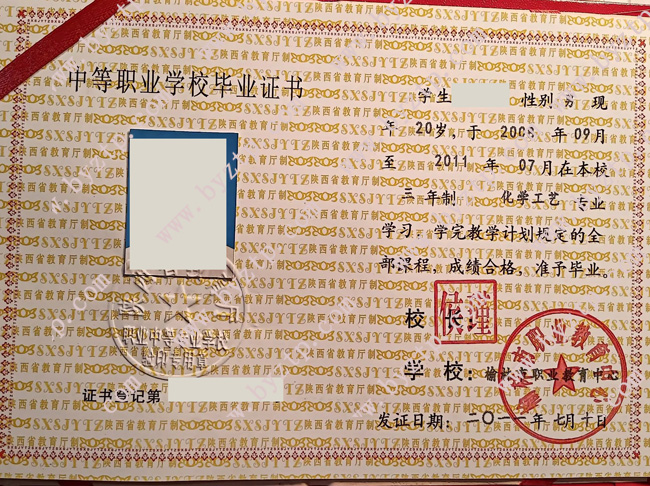 中等职业学校毕业证书
学生 性别 男 现
年 20岁，于 2008 年 09月
至 2011 年 07月在本校
三 年制 化学工艺 专业
学习，学完教学计划规定的全
部课程，成绩合格，准予毕业。
校 长
学 校：榆林市职业教育中心
证书登记第
发证日期：二〇一一年七月 日
榆林市职业教育中心
职业中等专业学校
钢印专用章
陕西省教育厅制
SXSJYTZ